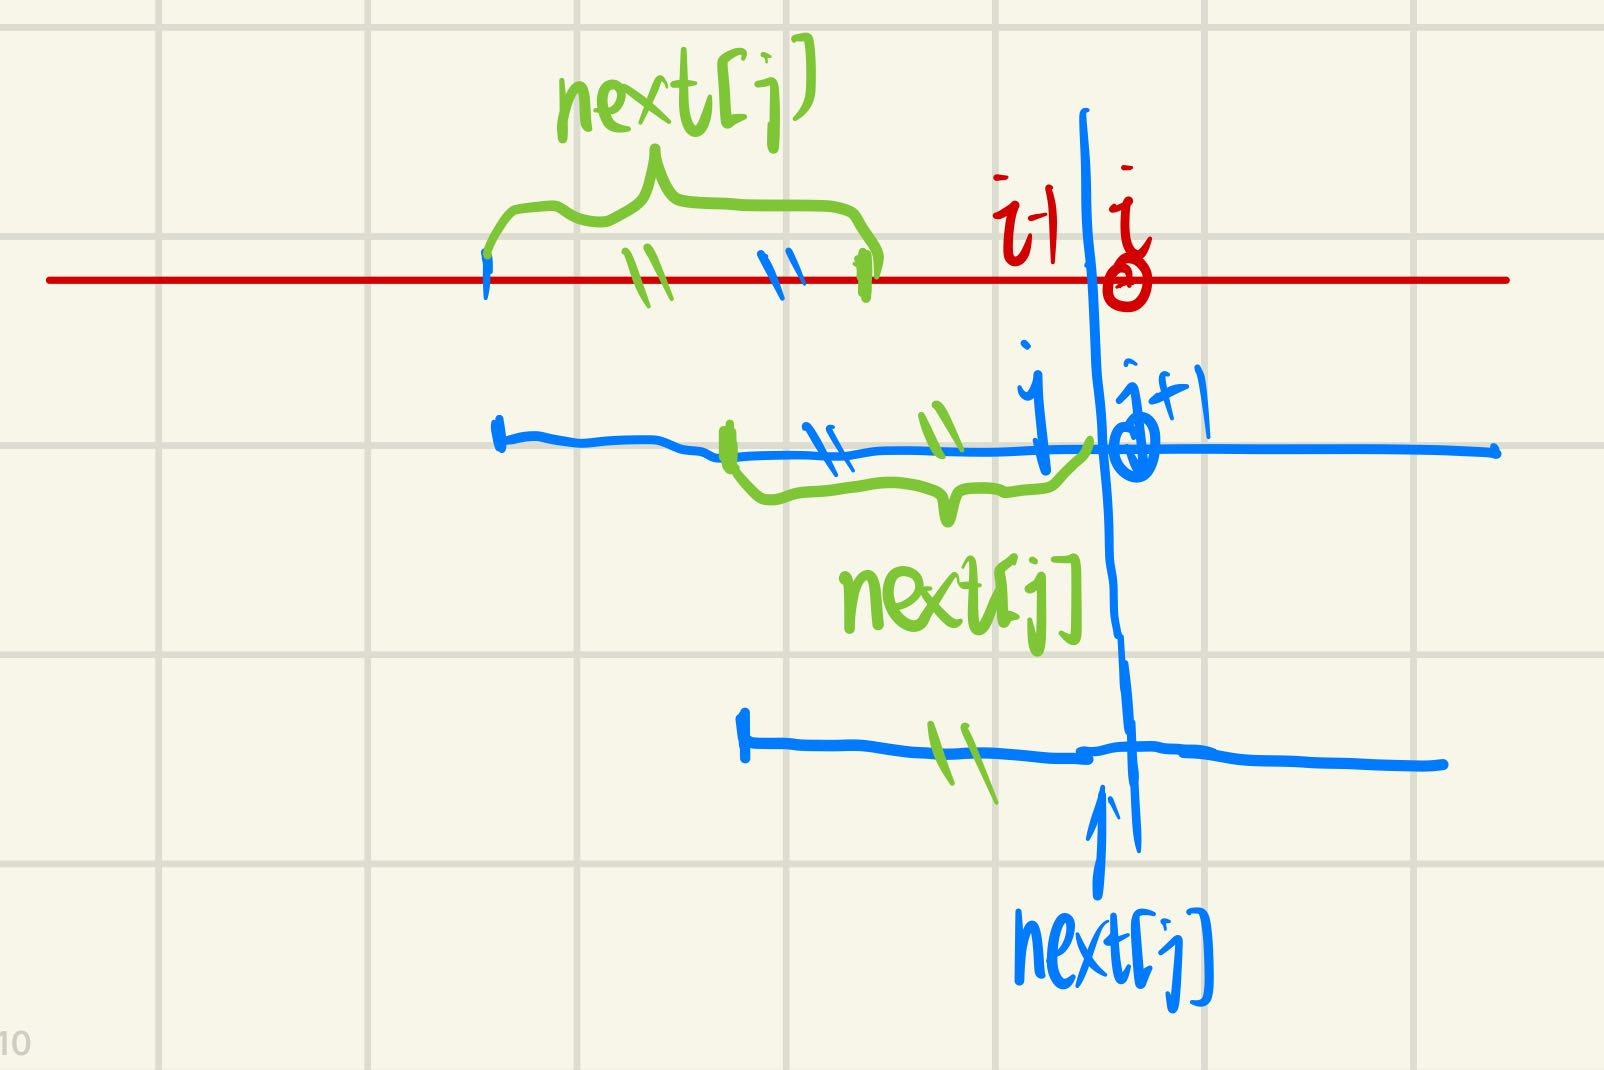 next[j]
i-1 i
j j+1
next[j]
next[j]
10